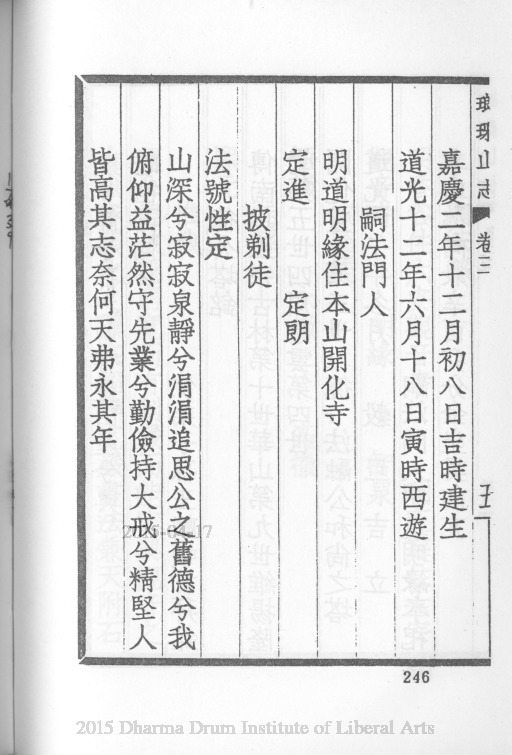 琅琊山志 卷三 五
嘉慶二年十二月初八日吉時建生
道光十二年六月十八日寅時西遊
嗣法門人
明道明緣住本山開化寺
定進 定朗
披剃徒
法號性定
山深兮寂寂泉靜兮涓涓追思公之舊德兮我
俯仰益茫然守先業兮勤儉持大戒兮精堅人
皆高其志奈何天弗永其年
2015-04-17
246
2015 Dharma Drum Institute of Liberal Arts